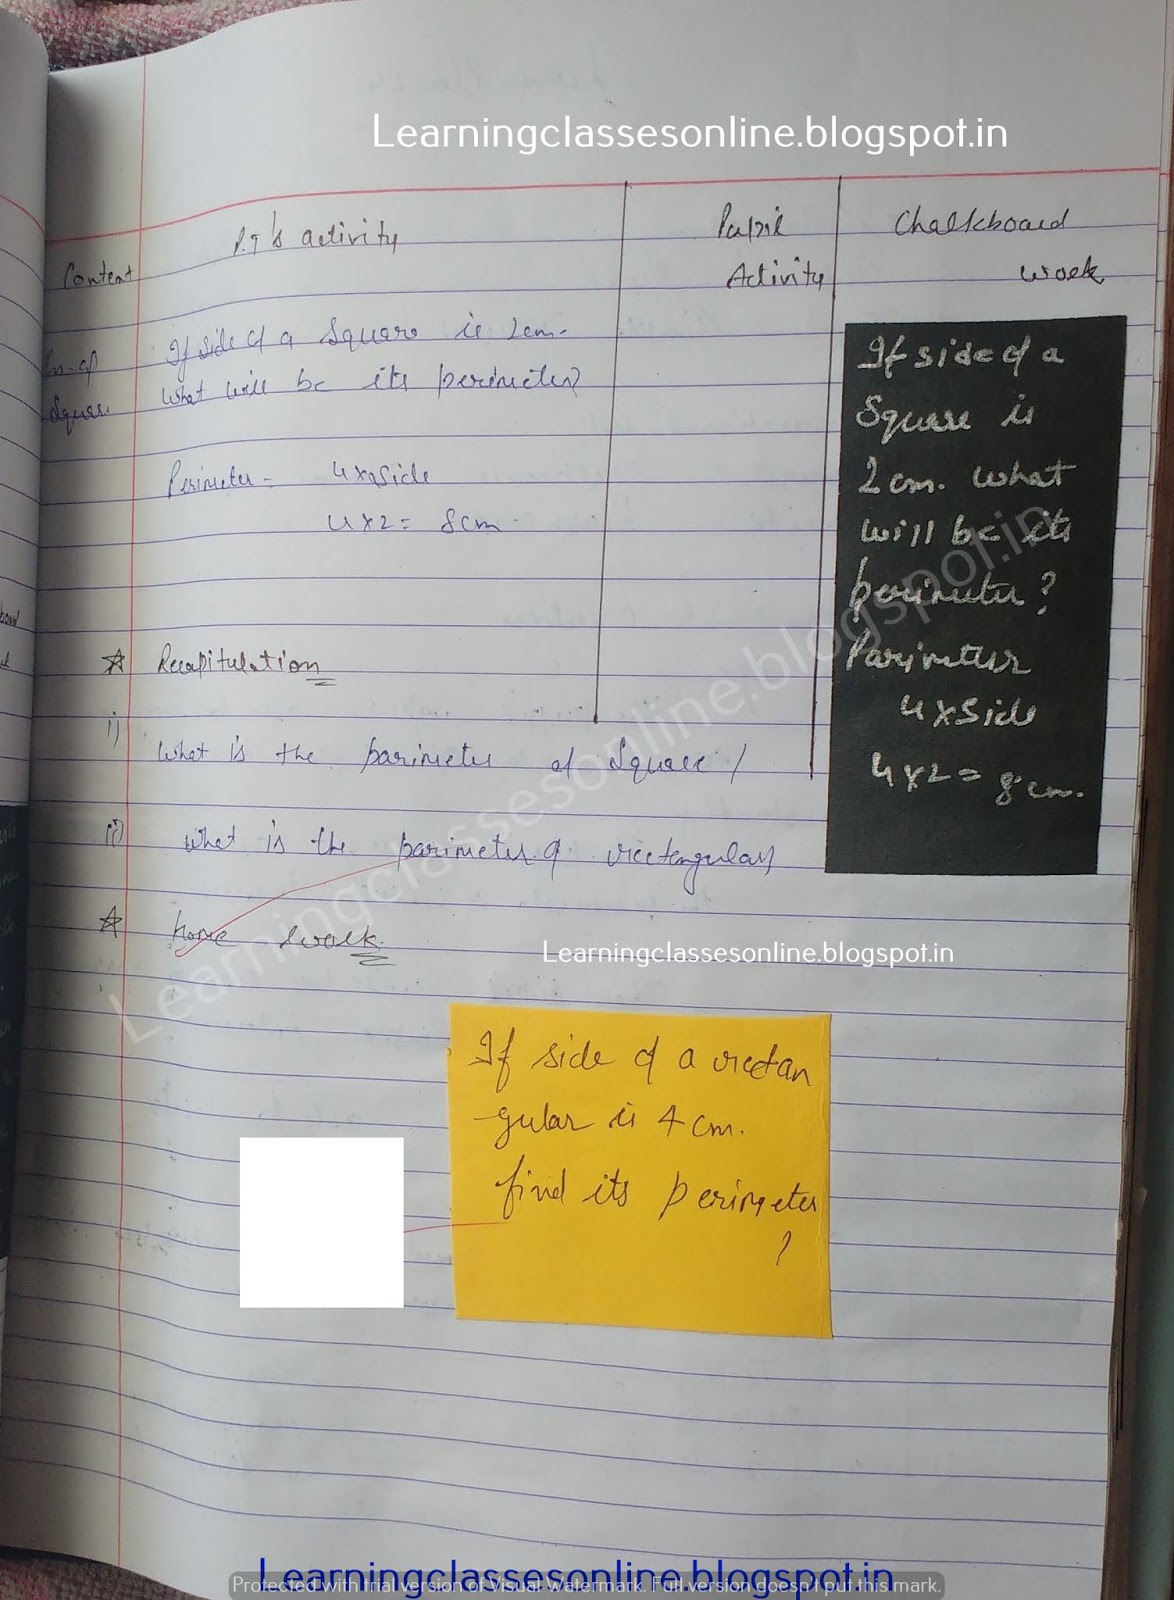 Learningclassesonline.blogspot.in
Content
P.T's activity
Pupil
Activity
Chalkboard
work
Ex. of
Square
If side of a Square is 2cm.
What will be its perimeter?
Perimeter = 4×side
4×2 = 8cm
If side of a
Square is
2cm. what
will be its
perimeter?
Parimeter
4×Side
4×2 = 8cm.
☆ Recapitulation
i) What is the parimeter of Square /
ii) What is the parimeter of rectangular
☆ home work
Learningclassesonline.blogspot.in
If side of a rectan
-gular is 4cm.
find its perimeter
?
Learningclassesonline.blogspot.in
Learningclassesonline.blogspot.in
Protected with trial version of Visual Watermark. Full version doesn't put this mark.